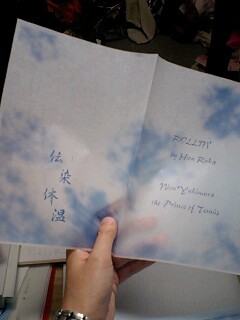 伝染体温
ROLLIN'
by Hon Raka
Niou*Yukimura
the Prince of Tennis